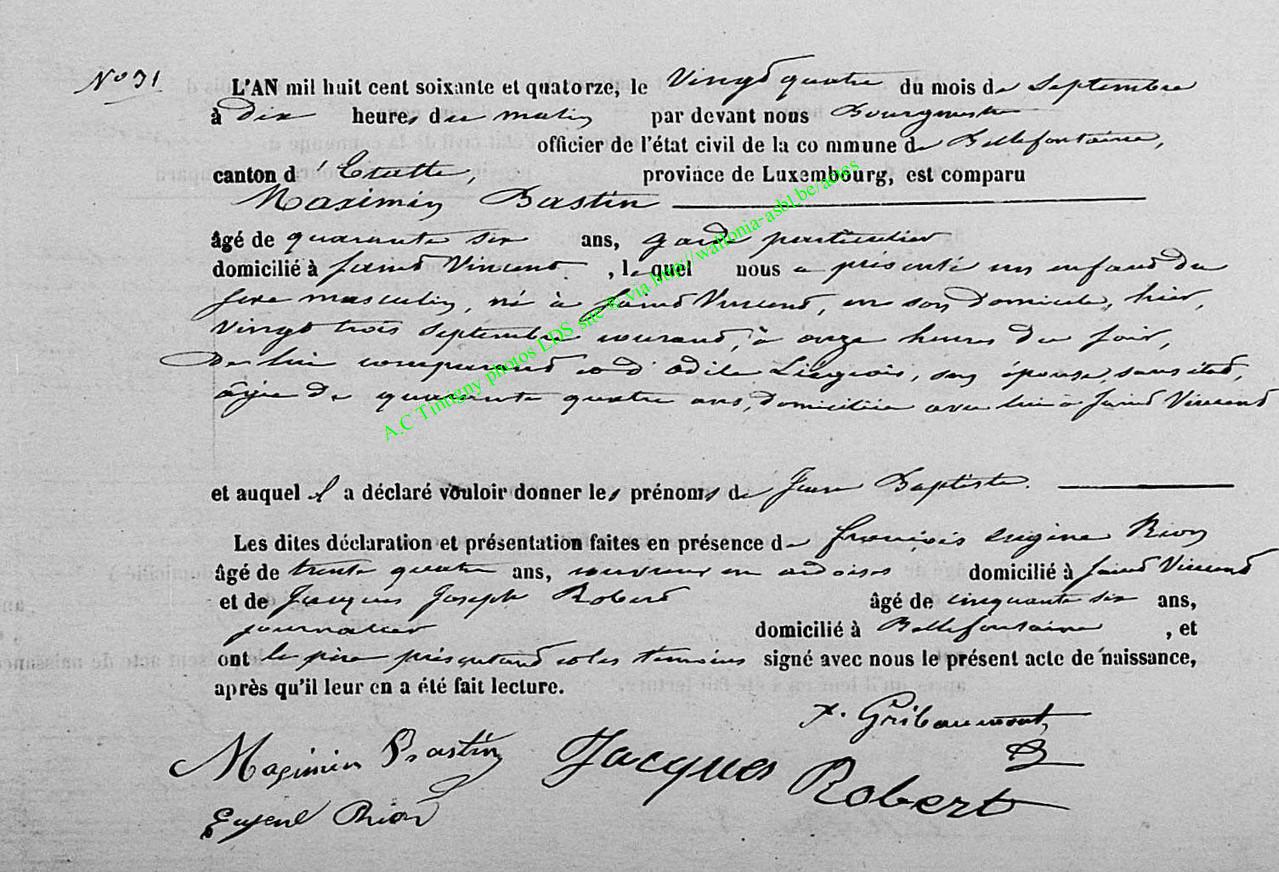 N° 31
L'AN mil huit cent soixante et quatorze, le Vingt quatre du mois de Septembre
à dix heures du matin par devant nous Bourgmestre
officier de l'état civil de la commune de Bellefontaine,
canton d'Etalle, province de Luxembourg, est comparu
Maximin Bastin
âgé de quarante six ans, garde particulier
domicilié à Saint Vincent, lequel nous a présenté un enfant du
sexe masculin, né à Saint Vincent, en son domicile, hier,
vingt trois Septembre courant, à onze heures du soir,
De lui comparant et d'Odile Liégeois, son épouse, sans état,
âgée de quarante quatre ans, domiciliée avec lui à Saint Vincent
et auquel il a déclaré vouloir donner les prénoms de Jean Baptiste.
Les dites déclaration et présentation faites en présence de François Eugène Rion
âgé de trente quatre ans, couvreur en ardoises domicilié à Saint Vincent
et de Jacques Joseph Robert âgé de cinquante six ans,
journalier domicilié à Bellefontaine, et
ont le père présentant et les témoins signé avec nous le présent acte de naissance,
après qu'il leur en a été fait lecture.
Gribaumont
Maximin Bastin Jacques Robert
Eugene Rion
A.C Tintigny photos LDS site © via http://wallonia-asbl.be/actes